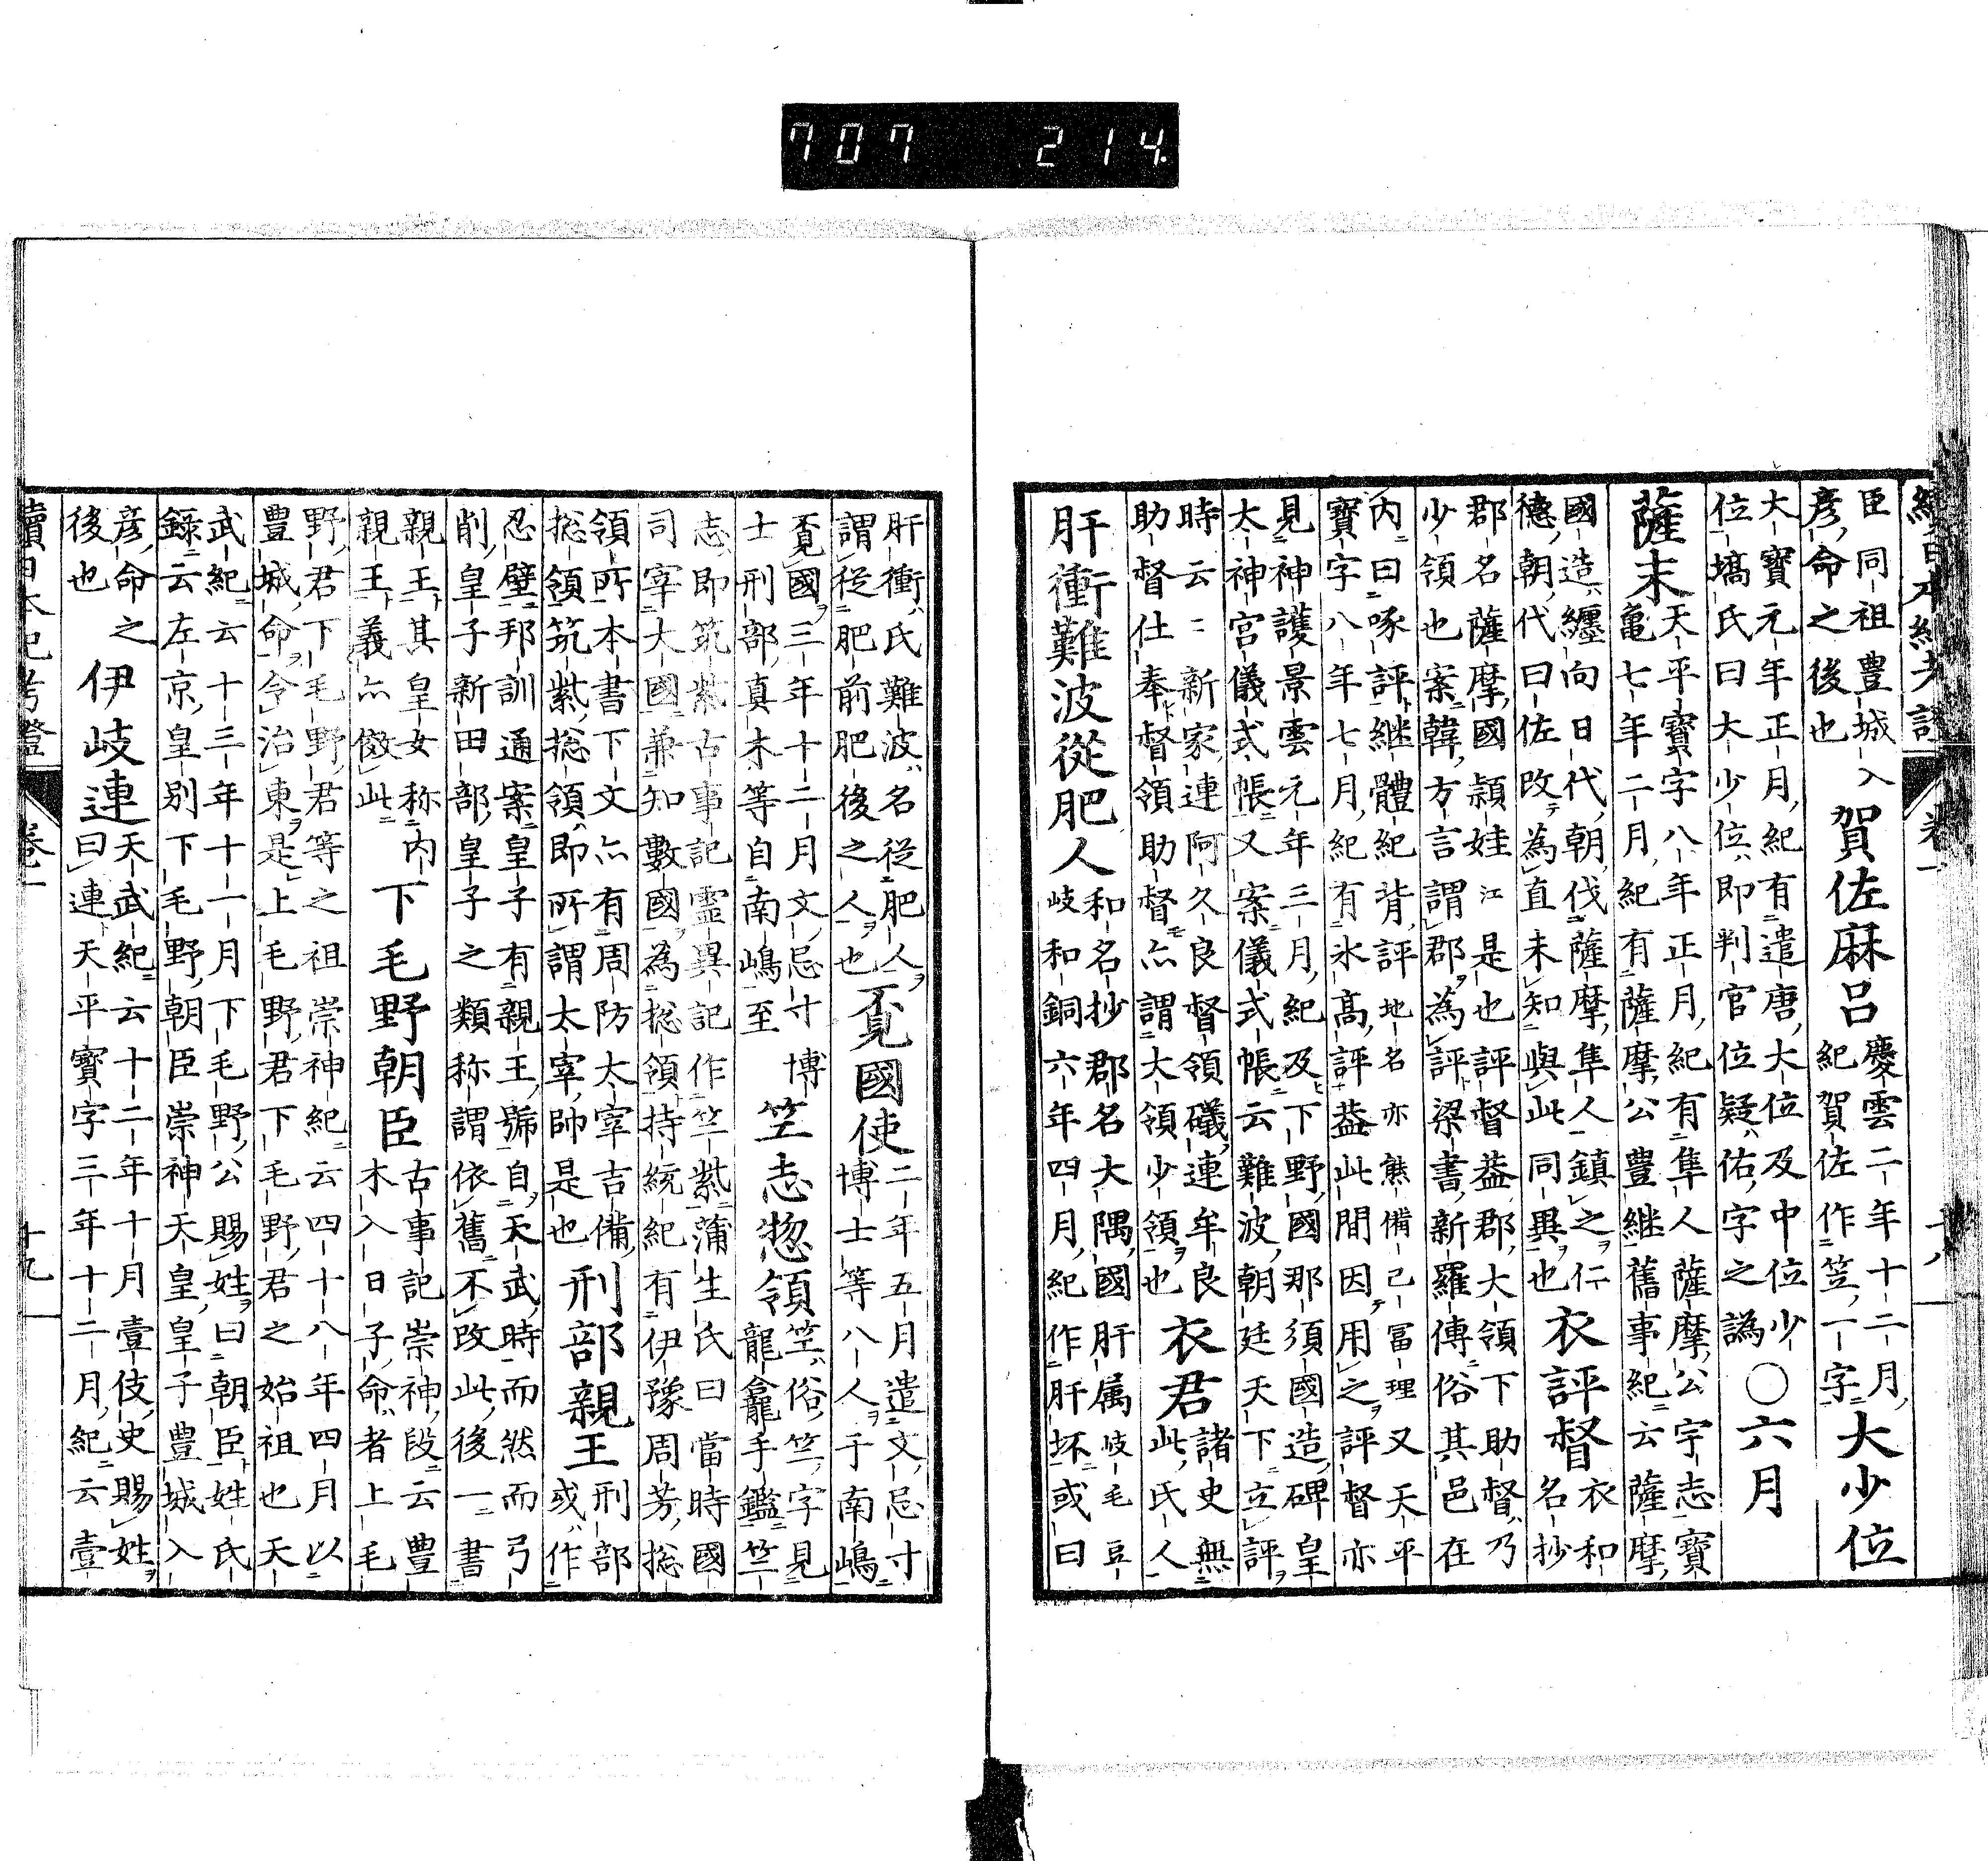 707 214
續日本紀考證 卷一 十八
臣同祖豊城入
彦命之後也
賀佐麻呂
慶雲二年十二月
紀賀佐作笠一字
大少位
大寶元年正月紀有遣唐大位及中位少
位塙氏曰大少位即判官位疑佑字之譌
○六月
薩末
天平寶字八年正月紀有隼人薩摩公宇志寶
亀七年二月紀有薩摩公豊継舊事紀云薩摩
國造纏向日代朝伐薩摩隼人鎮之仁
德朝代曰佐改為直未知與此同異也
衣評督
衣和
名抄
郡名薩摩國頴娃江是也評督葢郡大領下助督乃
少領也案韓方言謂郡為評梁書新羅傳俗其邑在
内曰啄評継體紀背評地名亦熊備己富理又天平
寶字八年七月紀有氷高評葢此間因用之評督亦
見神護景雲元年三月紀及下野國那須國造碑皇
太神宮儀式帳又案儀式帳云難波朝廷天下立評
時云〻新家連阿久良督領礒連牟良
助督仕奉督領助督亦謂大領少領也
衣君
諸史無
此氏人
肝衝難波從肥人
和名抄郡名大隅國肝属岐毛豆
岐和銅六年四月紀作肝坏或曰
肝衝氏難波名從肥人
謂從肥前肥後之人也
覔國使
二年五月遣文忌寸
博士等八人于南嶋
覔國三年十二月文忌寸博
士刑部真木等自南嶋至
笠志惣領
笠俗竺字見
龍龕手鑑竺
志即筑紫古事記霊異記作竺紫蒲生氏曰當時國
司宰大國兼知數國為総領持統紀有伊豫周芳総
領所本書下文亦有周防太宰吉備
総領筑紫総領即所謂太宰帥是也
刑部親王
刑部
或作
忍壁邦訓通案皇子有親王號自天武時而然而弓
削皇子新田部皇子之類称謂依舊不改此後一書
親王其皇女称内
親王義亦倣此
下毛野朝臣
古事記崇神段云豊
木入日子命者上毛
野君下毛野君等之祖崇神紀云四十八年四月以
豊城命令治東是上毛野君下毛野君之始祖也天
武紀云十三年十一月下毛野公賜姓曰朝臣姓氏
錄云左京皇別下毛野朝臣崇神天皇皇子豊城入
彦命之
後也
伊岐連
天武紀云十二年十月壹伎史賜姓
曰連天平寶字三年十二月紀云壹
續日本紀考證 卷一 十九